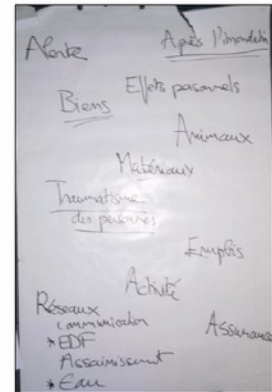 Alerte
Après l'inondation
Effets personnels
Biens
Animaux
Matériaux
Traumatisme
des personnes
Emplois
Activité
Réseaux
communication
* EDF
Assainissement
* Eau
Assurance